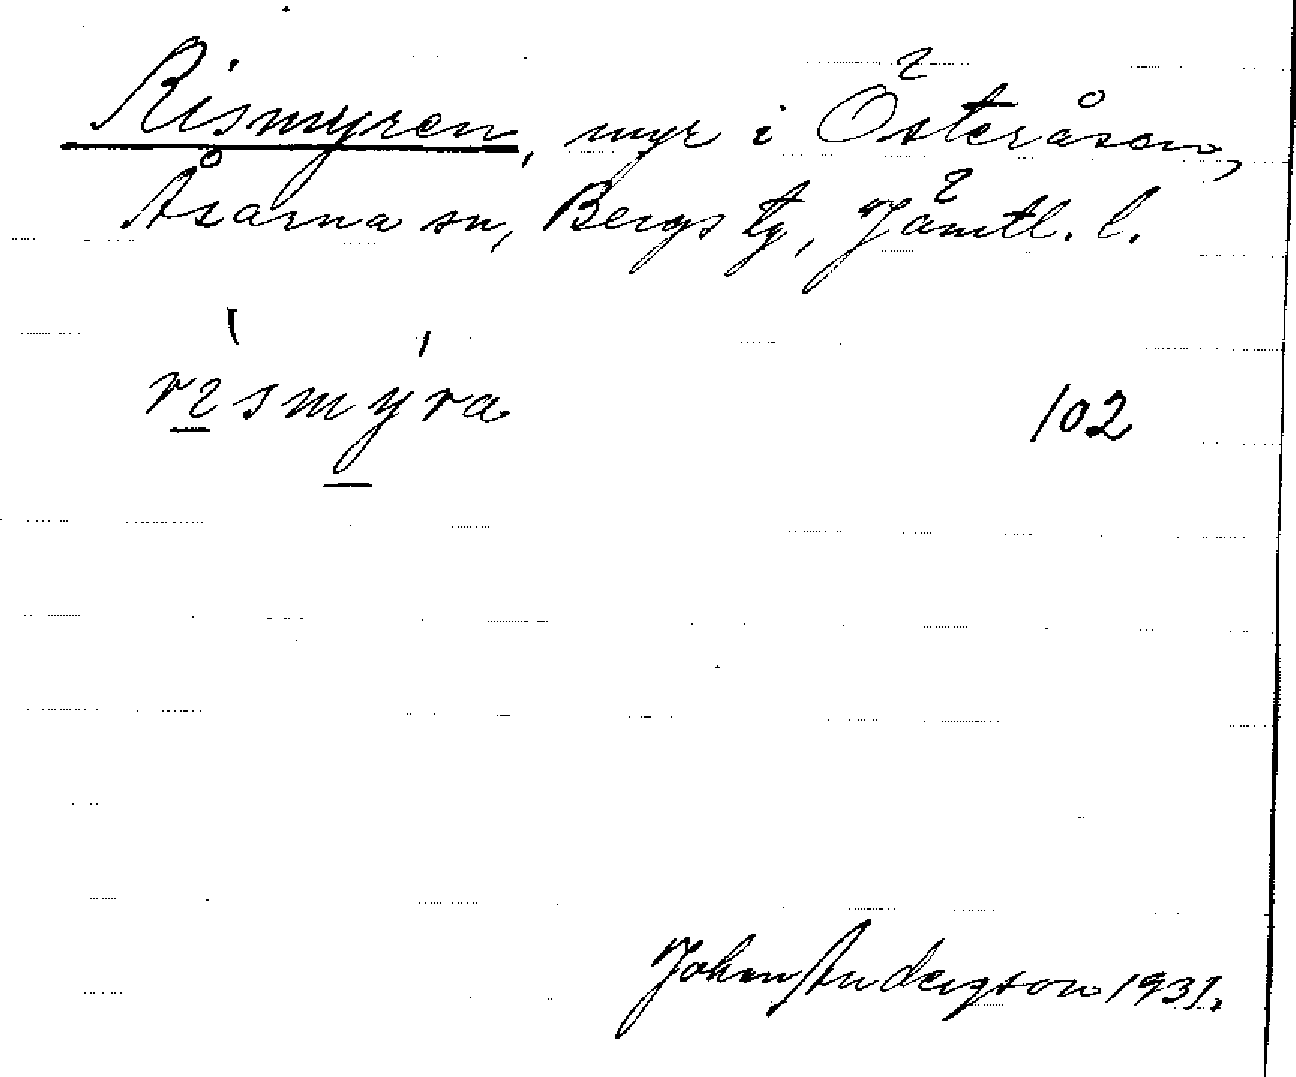 Rismyren, myr i Österåsen,
Åsarna sn, Bergs tg, Jämtl. l.
rismýra
102
John Anderson 1931.